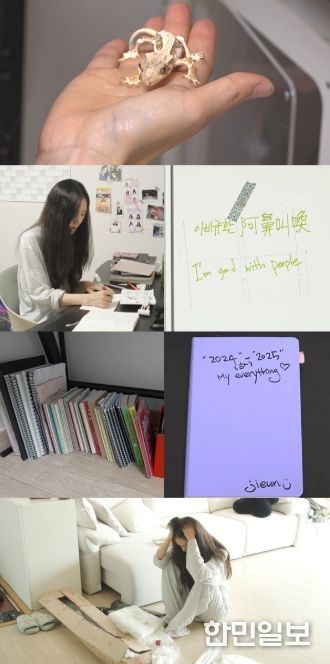 아비규환 阿鼻叫喚
I'm good with people
"2024" – "2025"
My everything♡
jieun
한민일보